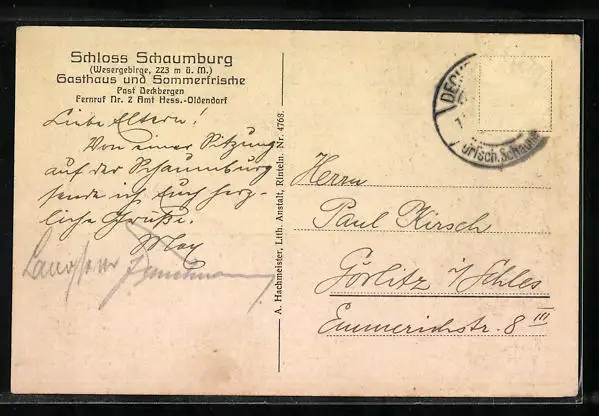 Schloss Schaumburg
(Wesergebirge, 223 m ü. M.)
Gasthaus und Sommerfrische
Post Deckbergen
Fernruf Nr. 2 Amt Hess.-Oldendorf
Liebe Eltern!
Von einer Sitzung
auf der Schaumburg
sende ich Euch herz-
liche Grüße.
Max
A. Hachmeister, Lith. Anstalt, Rinteln. Nr. 4768.
Herrn
Paul Kirsch
Görlitz i/Schles
Emmerichstr. 8 III